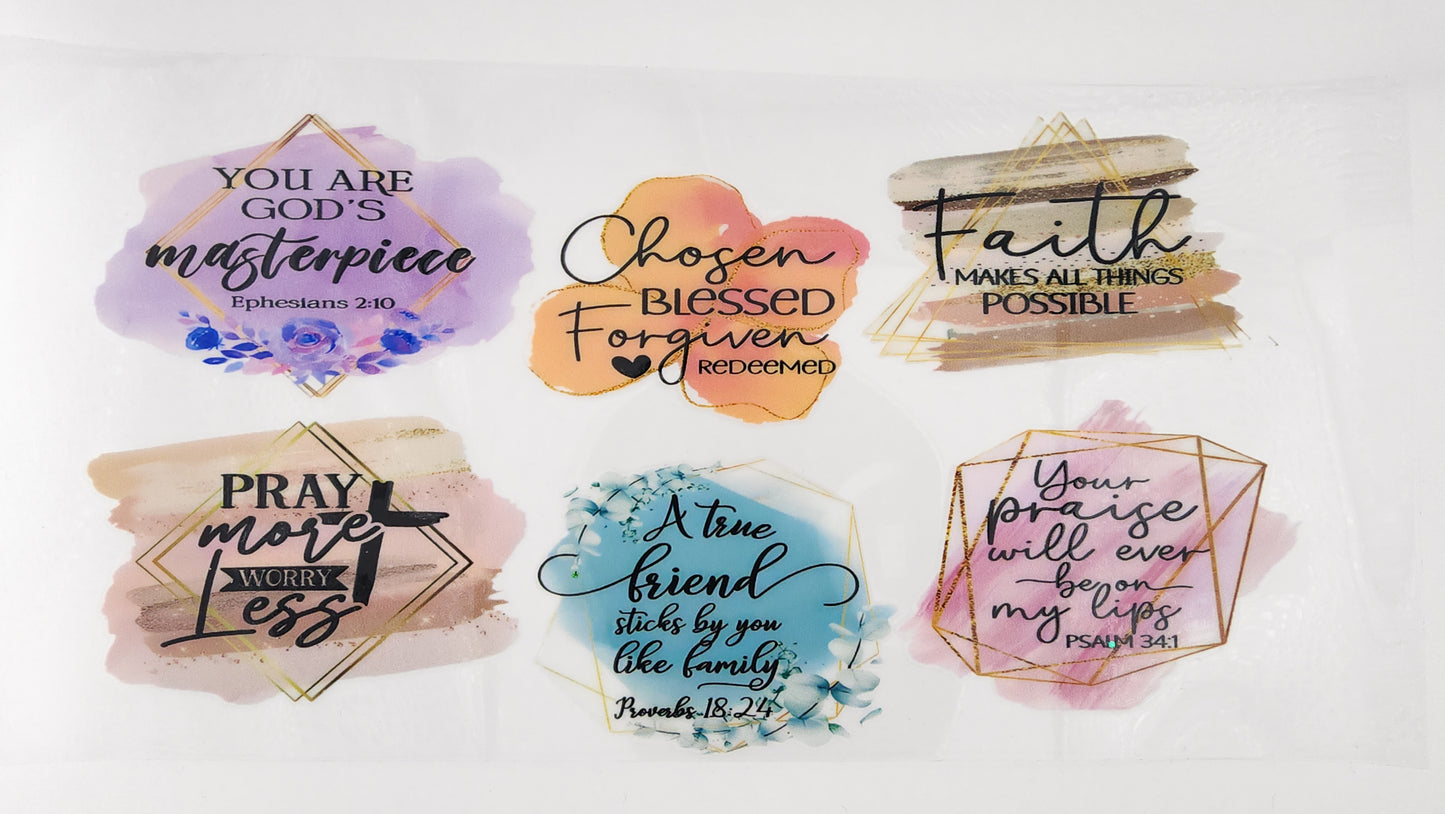 YOU ARE
GOD'S
masterpiece
Ephesians 2:10
Chosen
BLESSED
Forgiven
REDEEMED
Faith
MAKES ALL THINGS
POSSIBLE
PRAY
more
WORRY
Less
A true
friend
sticks by you
like family
Proverbs 18:24
Your
praise
will ever
be on
my lips
PSALM 34:1